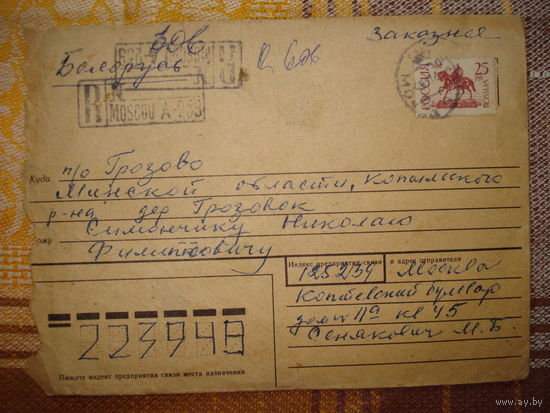 Заказное
Беларусь
R
MOSCOU A-253
РОССИЯ
25
ROSSIJA
Куда
п/о Грозово
Минской области, Копыльского
р-на дер Грозовок
Кому
Симончику Николаю
Филипповичу
Индекс предприятия связи и адрес отправителя
125239 Москва
Коптевский бульвар
дом 11а кв 45
Сенякович М.Б.
223948
Пишите индекс предприятия связи места назначения
www.ay.by